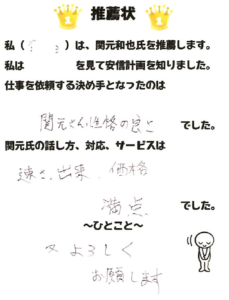 推薦状
私（　　　）は、関元和也氏を推薦します。
私は　　　を見て安信計画を知りました。
仕事を依頼する決め手となったのは
関元さん 性格の良さ でした。
関元氏の話し方、対応、サービスは
速さ、出来、価格
満点 でした。
～ひとこと～
又よろしく
お願します